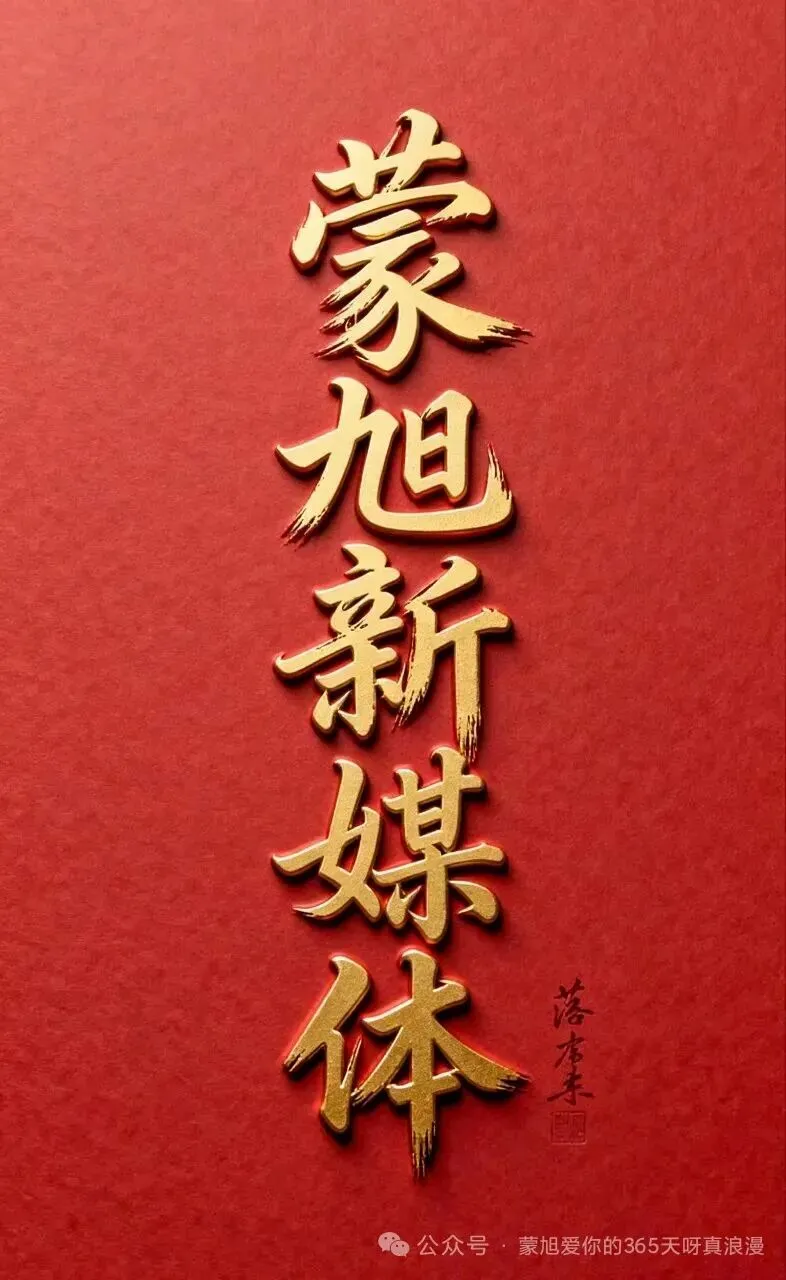 蒙旭新媒体
公众号 · 蒙旭爱你的365天呀真浪漫